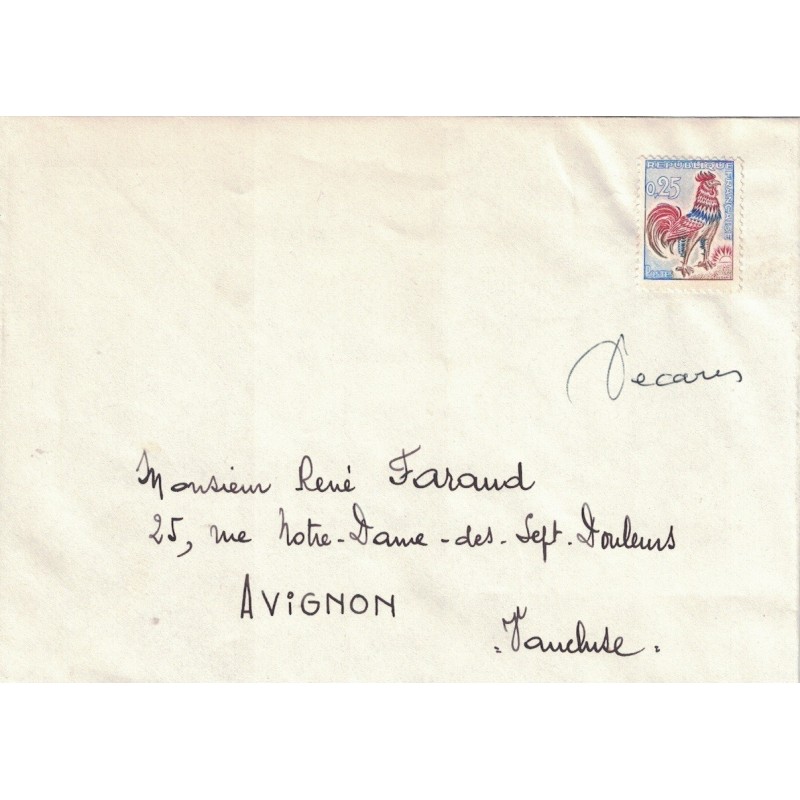 REPUBLIQUE FRANCAISE
0,25
POSTES
Decaris
Monsieur René Faraud
25, rue Notre-Dame-des-Sept-Douleurs
AVIGNON
Vaucluse